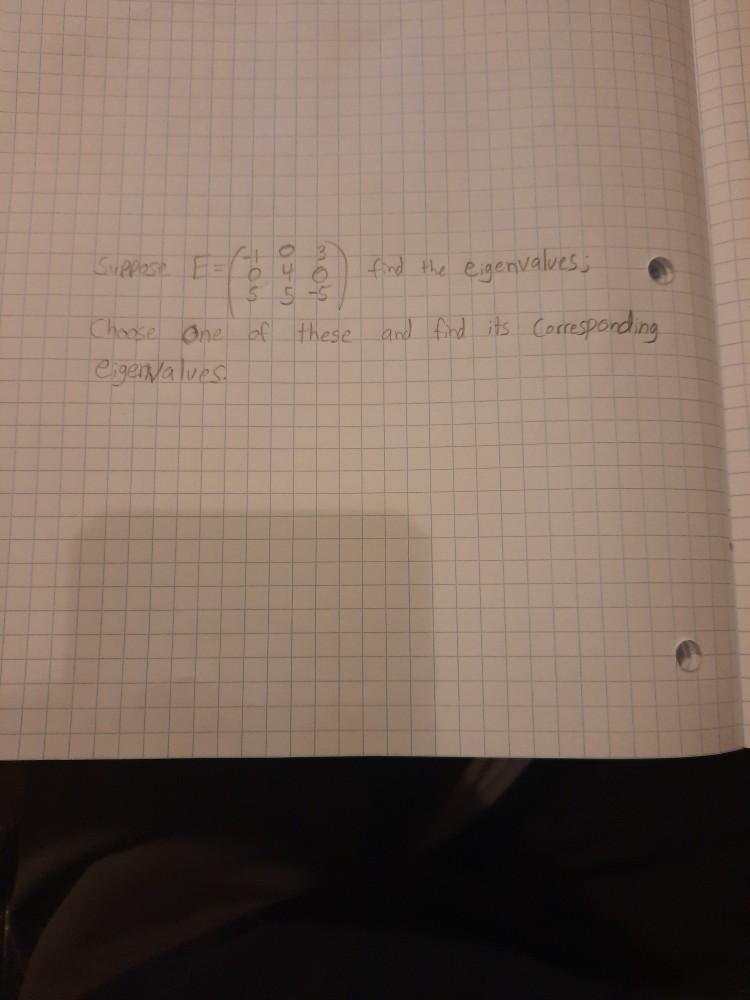 Suppose E = (-1 0 3
0 4 0
5 5 -5) find the eigenvalues;
Choose one of these and find its Corresponding
eigenvalues.